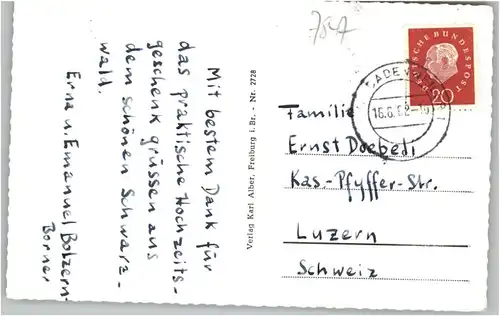 784
Mit bestem Dank für
das praktische Hochzeits-
geschenk grüssen aus
dem schönen Schwarz-
wald.
Erna u. Emanuel Bolzern-
Borner
Verlag Karl Alber, Freiburg i. Br. - Nr. 2728
DEUTSCHE BUNDESPOST
20
Familie
Ernst Doebeli
Kas.-Pfyffer-Str.
Luzern
Schweiz